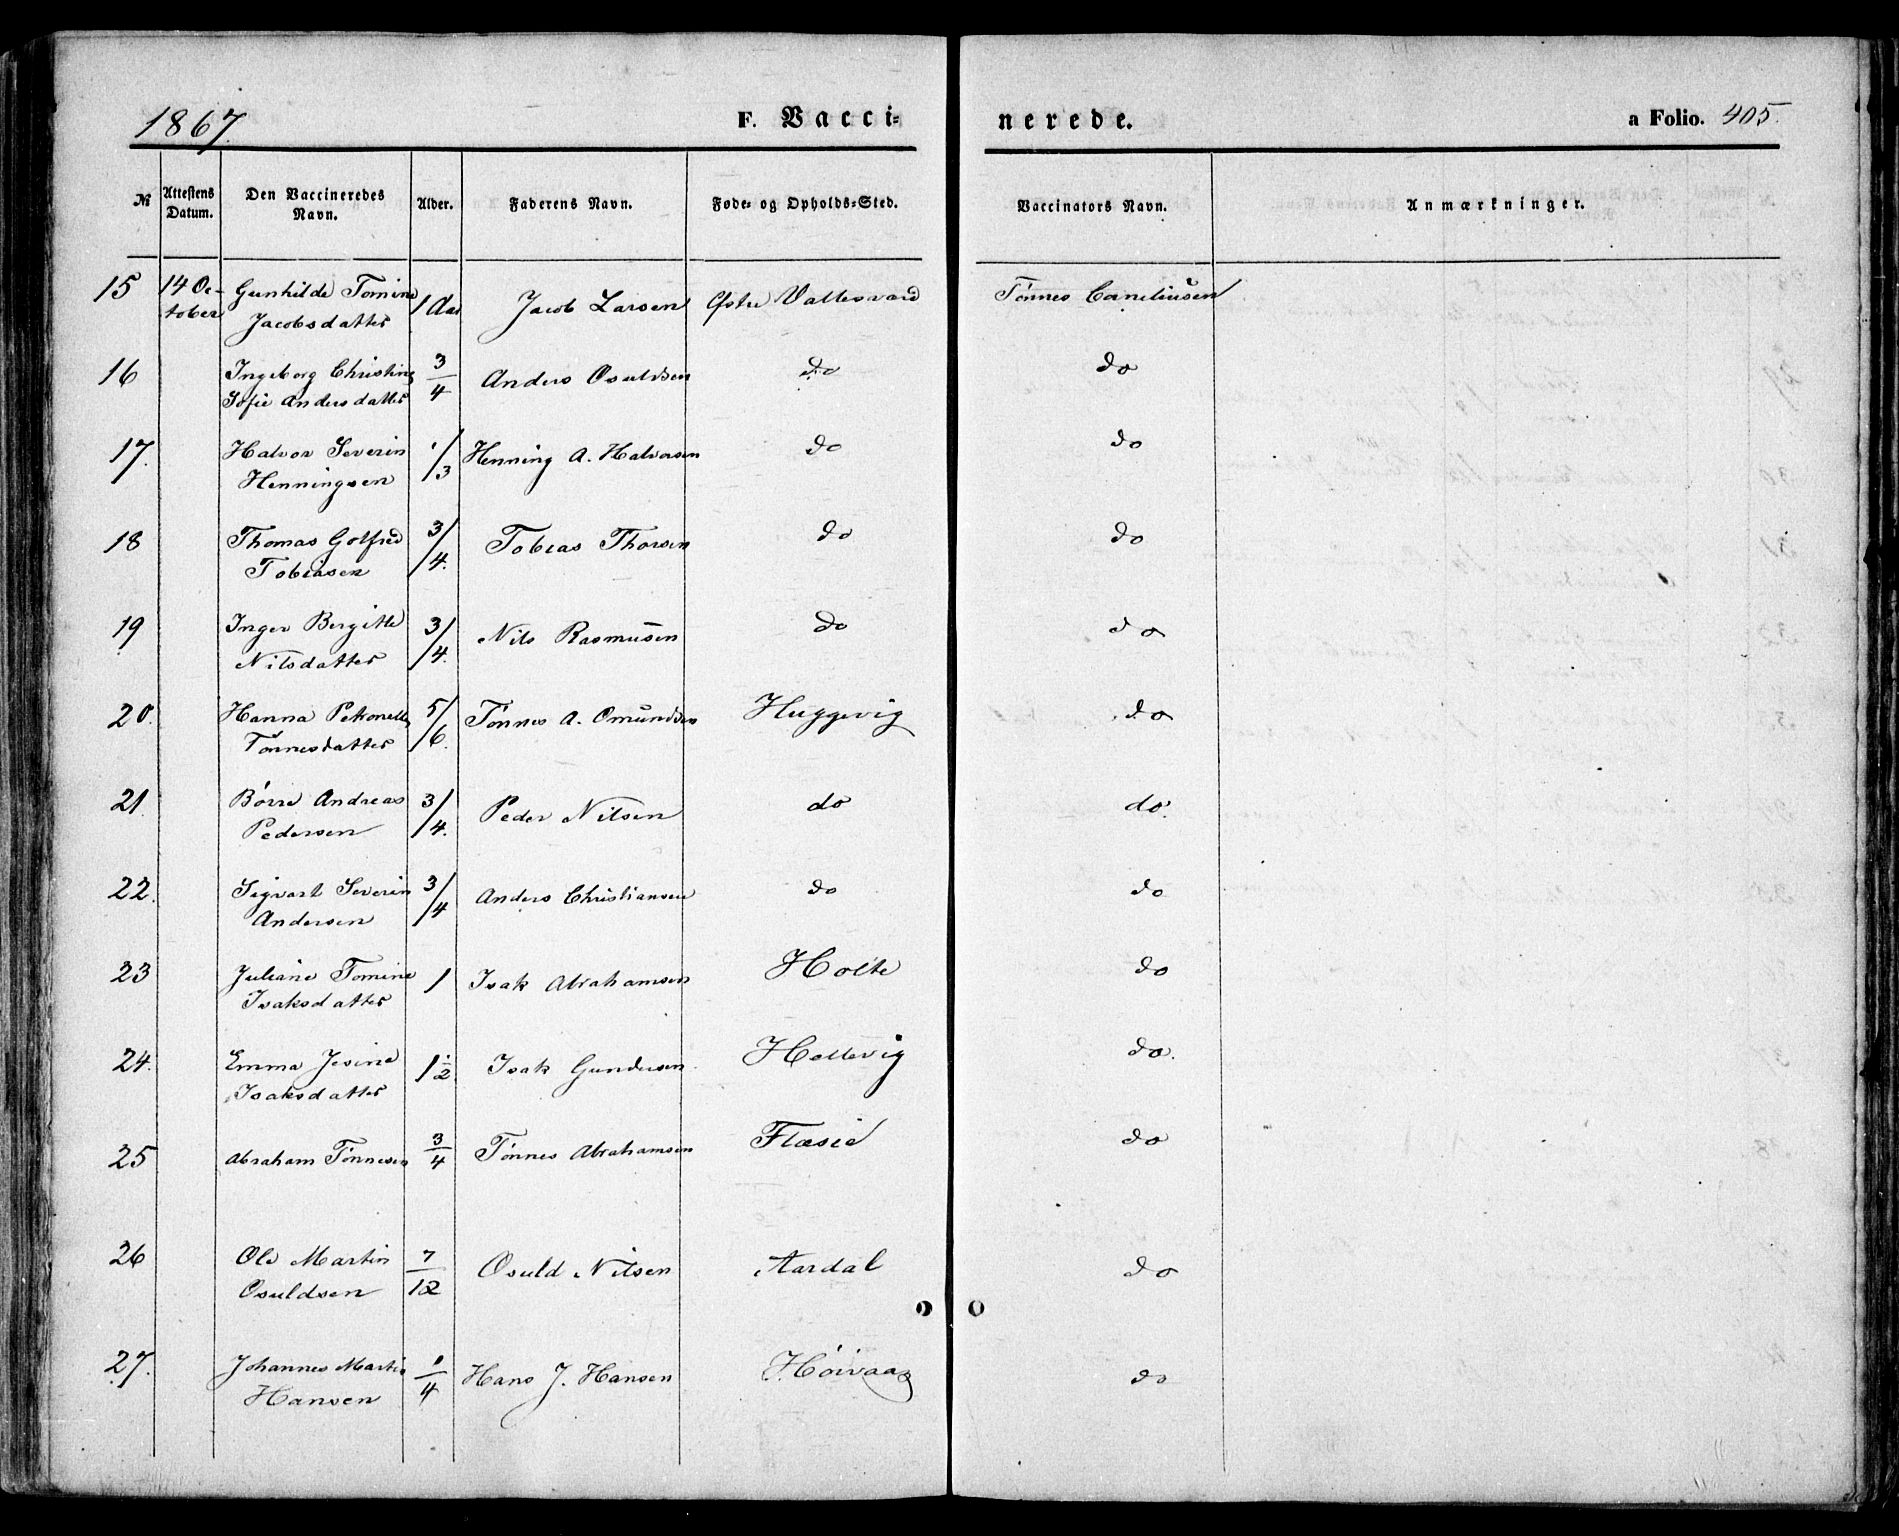 1867. F. Vacci= nerede. a Folio. 405.
№ Attestens Datum. Den Vaccineredes Navn. Alder. Faderens Navn. Føde- og Opholds-Sted. Vaccinators Navn. Anmærkninger.
15 14 Oc- Gunhilde Tomine 1 Aar Jacob Larsen Østre Vallesværd Tønnes Corneliusen
tober Jacobsdatter
16 Ingeborg Christine 3/4 Anders Osuldsen do do
Sofie Andersdatter
17. Halvor Severin 1/3 Henning A. Halvorsen do do
Henningsen
18 Thomas Gotfred 3/4. Tobias Thorsen do do
Tobiasen
19 Inger Bergitte 3/4. Nils Rasmusen do do
Nilsdatter
20. Hanna Petronelle 5/6. Tønnes A. Omundsen Huggevig do
Tønnesdatter
21. Børre Andreas 3/4. Peder Nilsen do do.
Pedersen
22. Sigvart Severin 3/4 Anders Christiansen do do
Andersen
23 Juliane Tomine 1 Isak Abrahamsen Holte do
Isaksdatter
24. Emma Jesine 1 1/2. Isak Gundersen Hellevig do.
Isaksdatter
25 Abraham Tønnesen 3/4 Tønnes Abrahamsen Flasie do
26 Ole Martin 7/12 Osuld Nilsen Aardal do
Osuldsen
27. Johannes Martin 1/4 Hans J. Hansen Høivaag do
Hansen